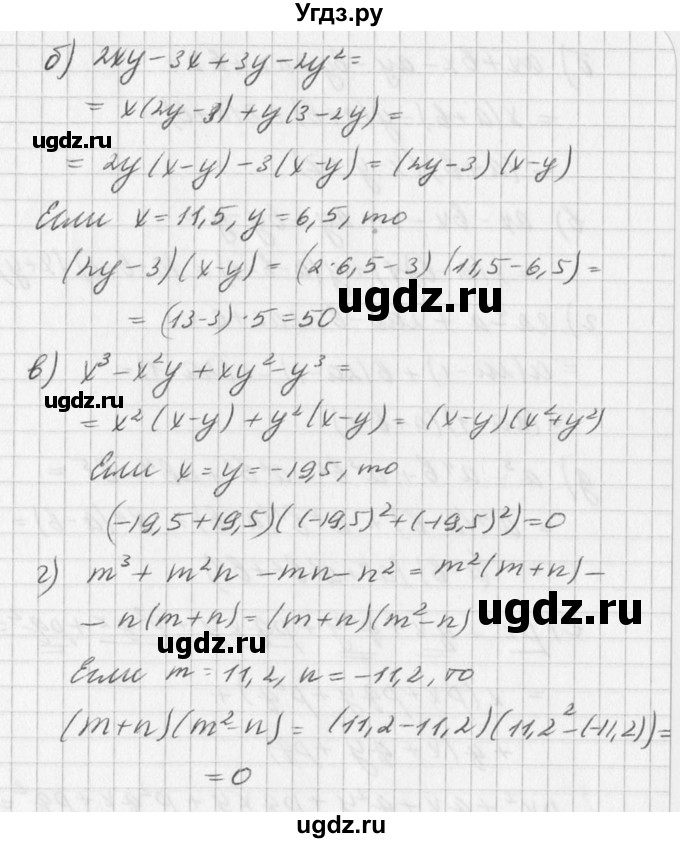 Угдз.ру
б) 2xy - 3x + 3y - 2y² =
= x(2y - 3) + y(3 - 2y) =
ugdz.ru
= 2y(x - y) - 3(x - y) = (2y - 3)(x - y)
Если x = 11,5, y = 6,5, то
(2y - 3)(x - y) = (2·6,5 - 3)(11,5 - 6,5) =
ugdz.ru
= (13 - 3)·5 = 50
в) x³ - x²y + xy² - y³ =
ugdz.ru
= x²(x - y) + y²(x - y) = (x - y)(x² + y²)
Если x = y = -19,5, то
(-19,5 + 19,5)((-19,5)² + (-19,5)²) = 0
г) m³ + m²n - mn - n² = m²(m + n) -
- n(m + n) = (m + n)(m² - n)
ugdz.ru
ugdz.ru
Если m = 11,2, n = -11,2, то
(m + n)(m² - n) = (11,2 - 11,2)(11,2² - (-11,2)) =
= 0
ugdz.ru
ugdz.ru